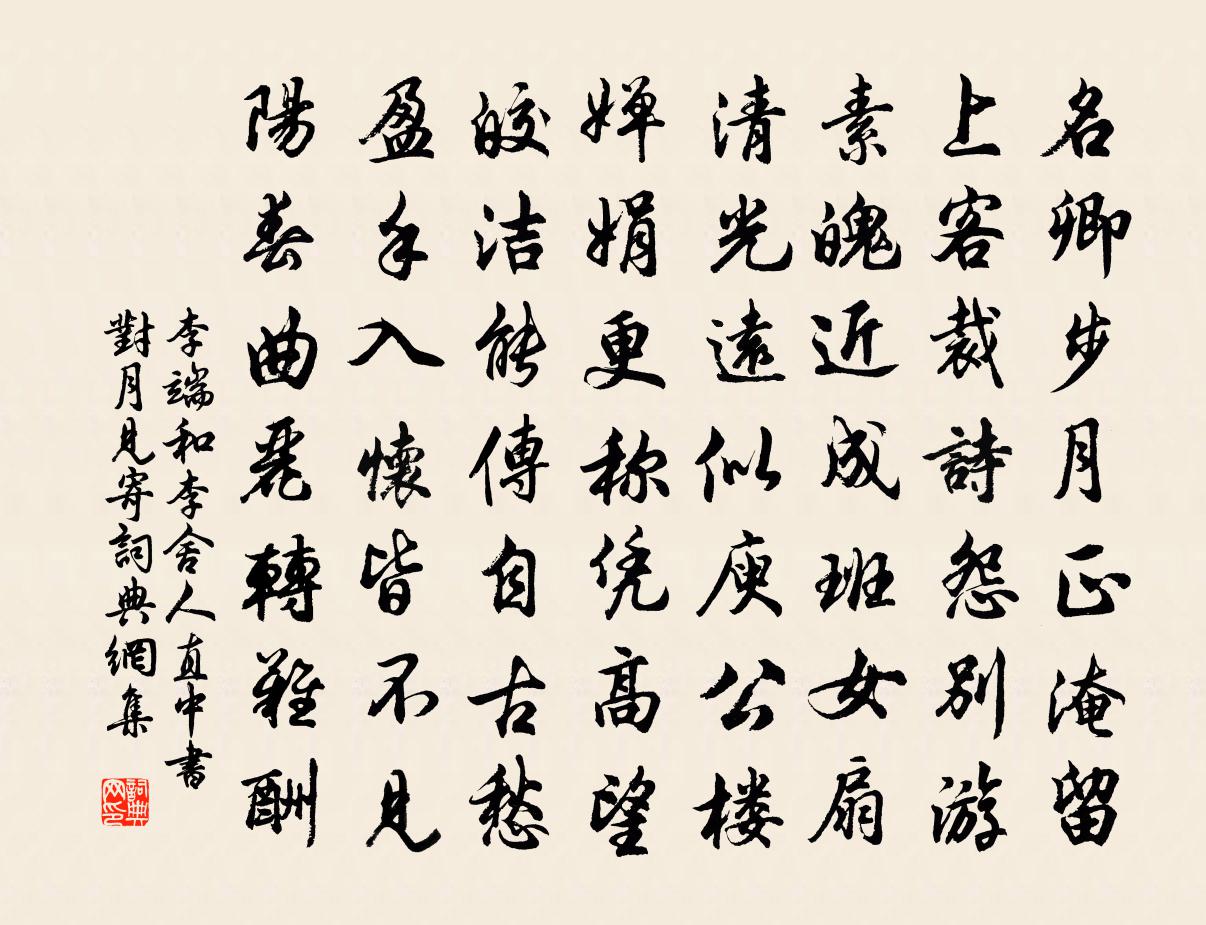 名卿步月正淹留
上客裁詩怨別游
素魄近成班女扇
清光遠似庾公楼
嬋娟更称凭高望
皎洁能傳自古愁
盈手入懷皆不見
陽春曲麗轉難酬
李端和李舍人直中書
對月見寄詞典網集
詞典
网印